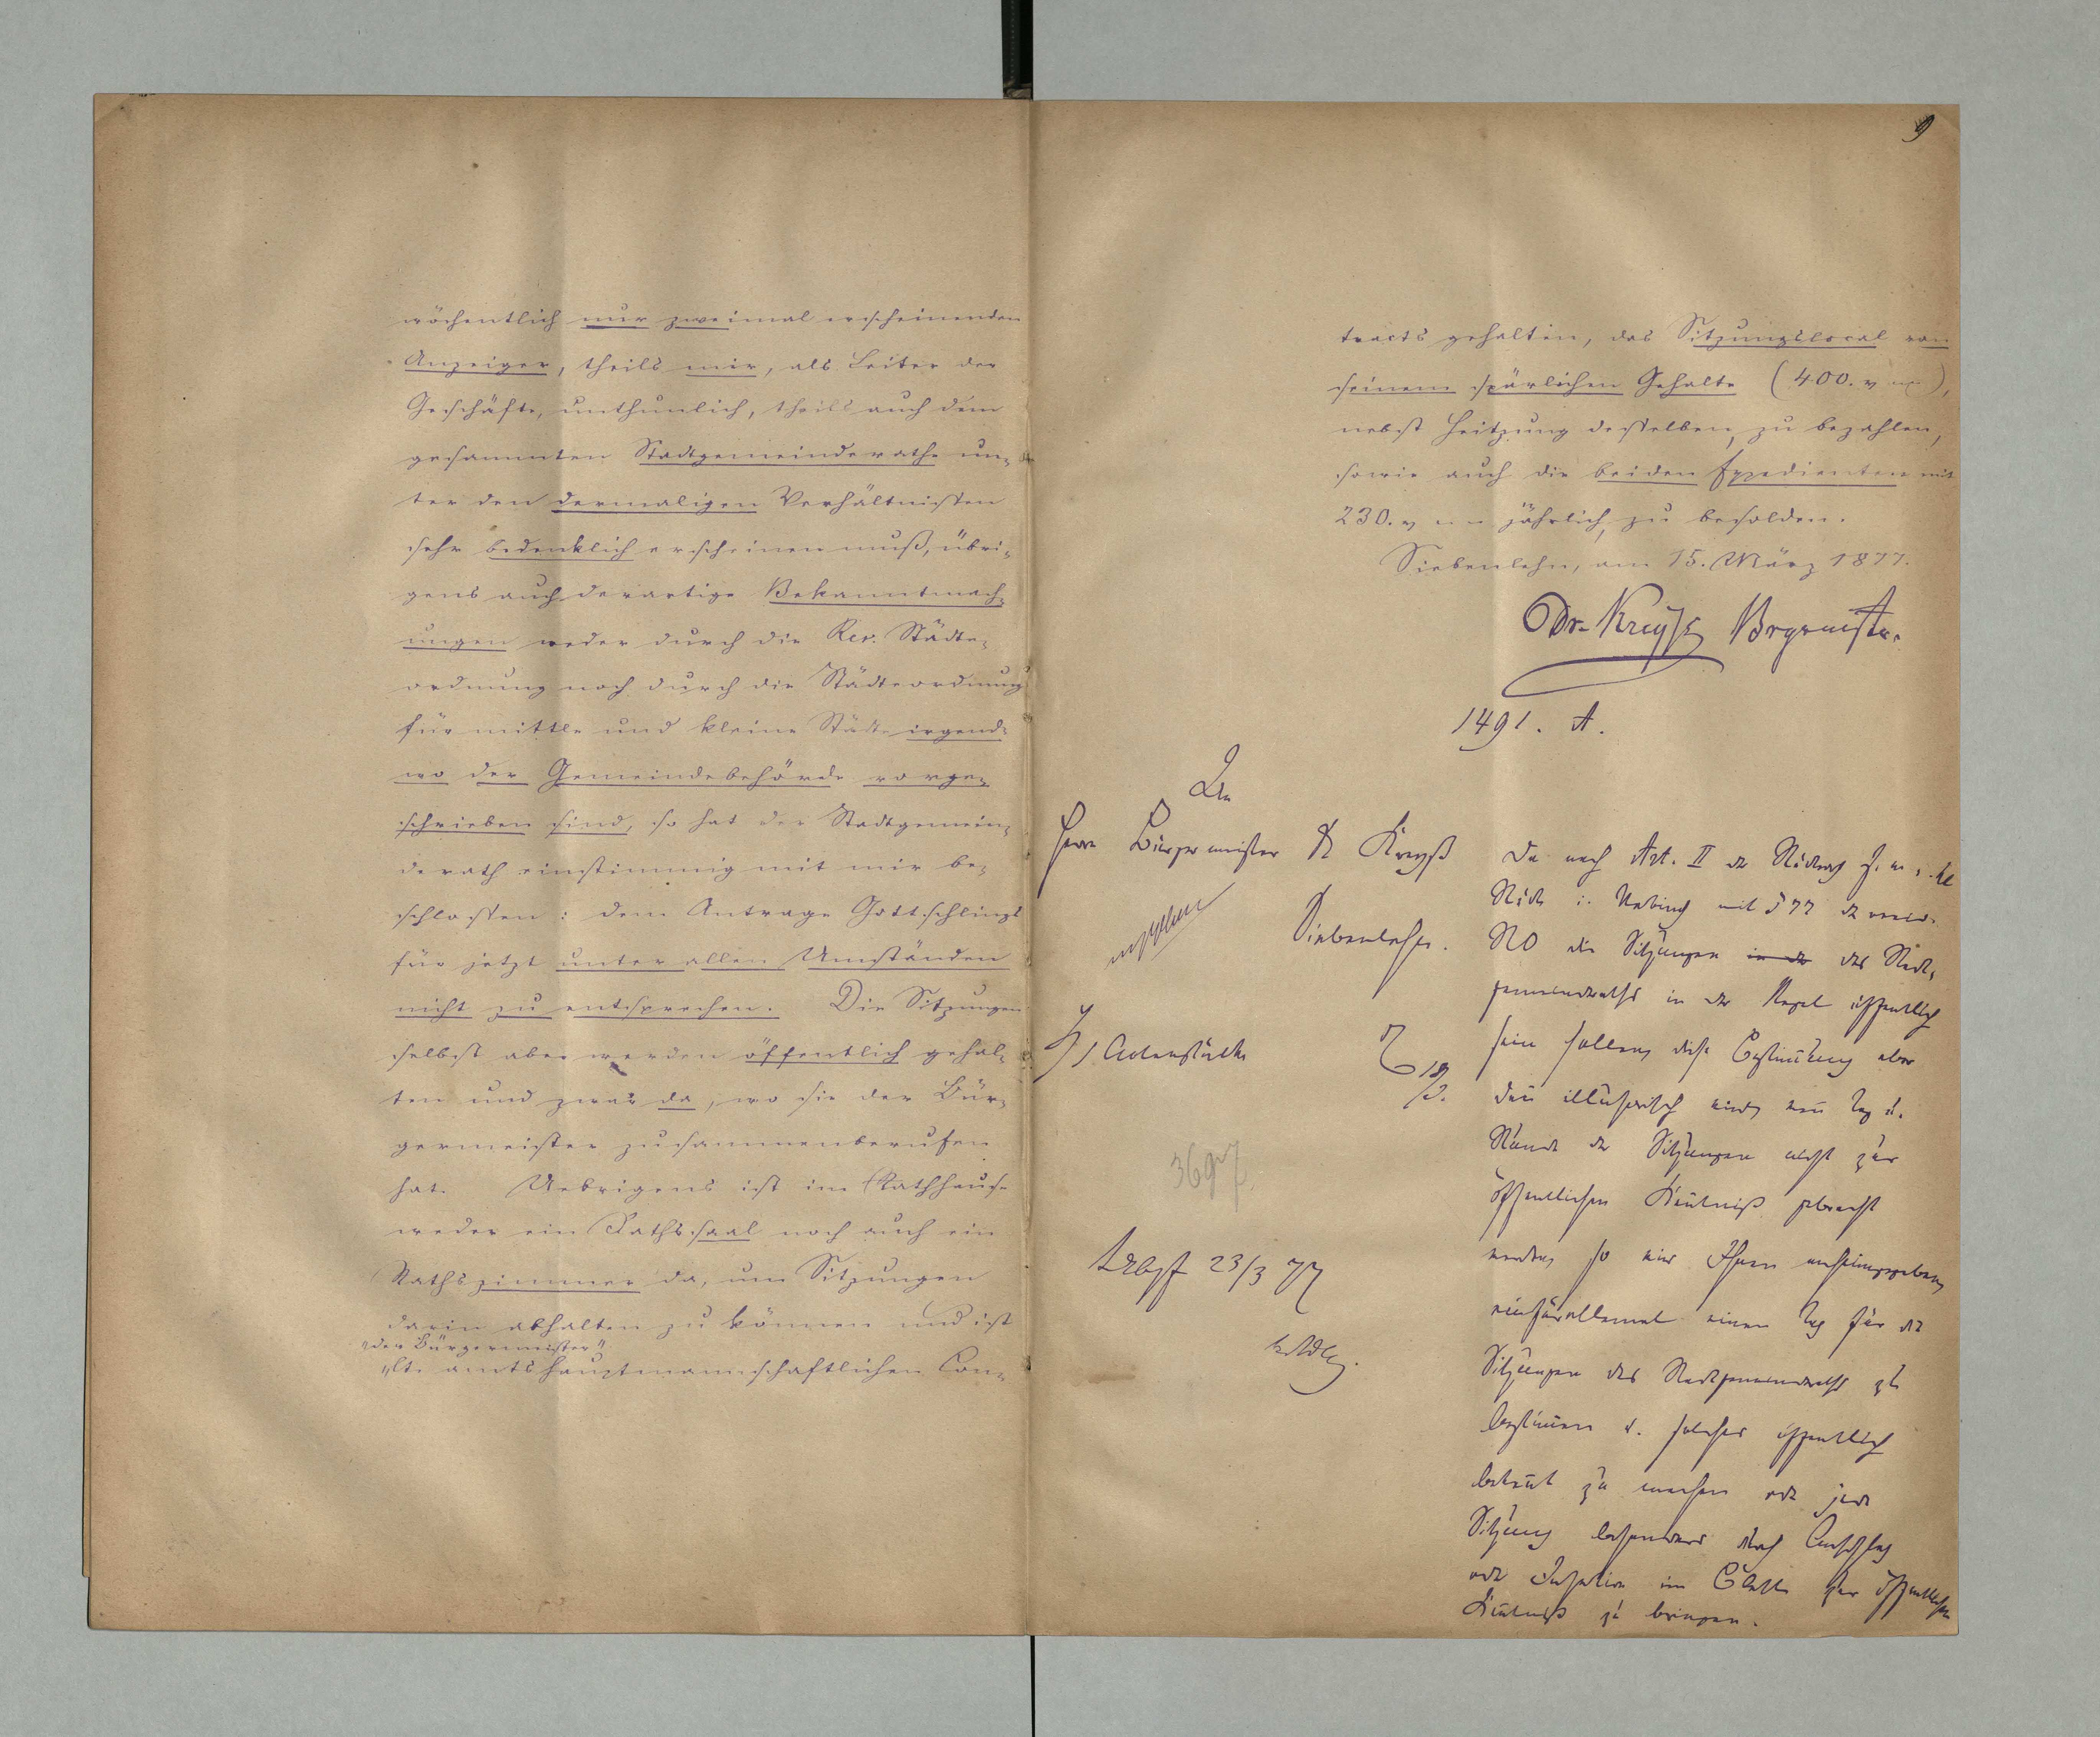 wöchentlich nur zweimal erscheinenden
Anzeiger, theils mir, als Leiter der
Geschäfte, unthunlich, theils auch dem
gesammten Stadtgemeinderathe un-
ter den dermaligen Verhältnissen
sehr bedenklich erscheinen muß, übri-
gens auch derartige Bekanntmach-
ungen weder durch die Rev. Städte-
ordnung noch durch die Städteordnung
für mittle und kleine Städte irgend-
wo der Gemeindebehörde vorge-
schrieben sind, so hat der Stadtgemein-
derath einstimmig mit mir be-
schlossen: dem Antrage Gottschlings
für jetzt unter allen Umständen
nicht zu entsprechen. Die Sitzungen
selbst aber werden öffentlich gehal-
ten und zwar da, wo sie der Bür-
germeister zusammenberufen
hat. Uebrigens ist im Rathhause
weder ein Rathssaal noch auch ein
Rathszimmer da, um Sitzungen
darin abhalten zu können und ist
"der Bürgermeister"
"lt. amtshauptmannschaftlichen Con-
9
tracts gehalten, das Sitzungslocal von
seinem spärlichen Gehalte (400.
nebst Heitzung desselben, zu bezahlen,
sowie auch die beiden Expedienten mit
230. jährlich, zu besolden.
Siebenlehn, am 15. März 1877.
Dr. Kreyß Brgrmstr.
1491. A.
An
Herrn Bürgermeister Dr Kreyß
Siebenlehn.
1 Actenstück
19/3.
369
23/3 77
Da nach Art. II der Städteordg f. m. u. kl
Städte i. Verbindg mit § 77 der revid.
StO die Sitzungen in der des Stadt-
gemeinderaths in der Regel öffentlich
sein sollen, diese Bestimung aber
dan illusorisch wird, wen Tag u.
Stunde der Sitzungen nicht zur
öffentlichen Kentniß gebracht
werden, so wird Ihnen anheimgegeben,
einfürallemal einen Tag für die
Sitzungen des Stadtgemeinderaths zu
bestimen u. solches öffentlich
bekant zu machen oder jede
Sitzung besonders durch Anschlag
oder Insertion im Blatte zur öffentlichen
Kentniß zu bringen.